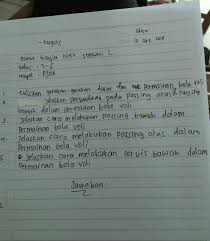 - tugas
10 Okt 2018
nama
kelas : 7-6
mapel : PJOK
1. tuliskan gerakan-gerakan dasar dlm permainan bola voli
2. jelaskan perbedaan pada passing atas & passing
bawah dalam permainan bola voli
3. Jelaskan cara melakukan passing bawah dalam
Permainan bola voli
4. Jelaskan cara melakukan passing atas dalam
Permainan bola voli
5 jelaskan cara melakukan servis bawah dalam
Permainan bola voli
Jawaban